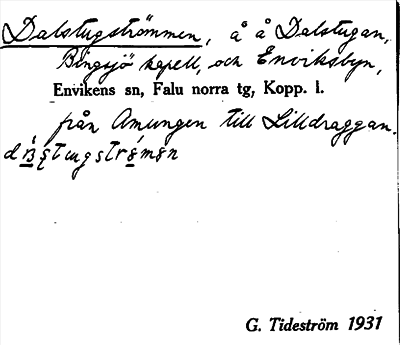 Dalstugströmmen, å å Dalstugan,
Bingsjö kapell, och Enviksbyn,
Envikens sn, Falu norra tg, Kopp. l.
från Amungen till Lilldraggan.
G. Tideström 1931